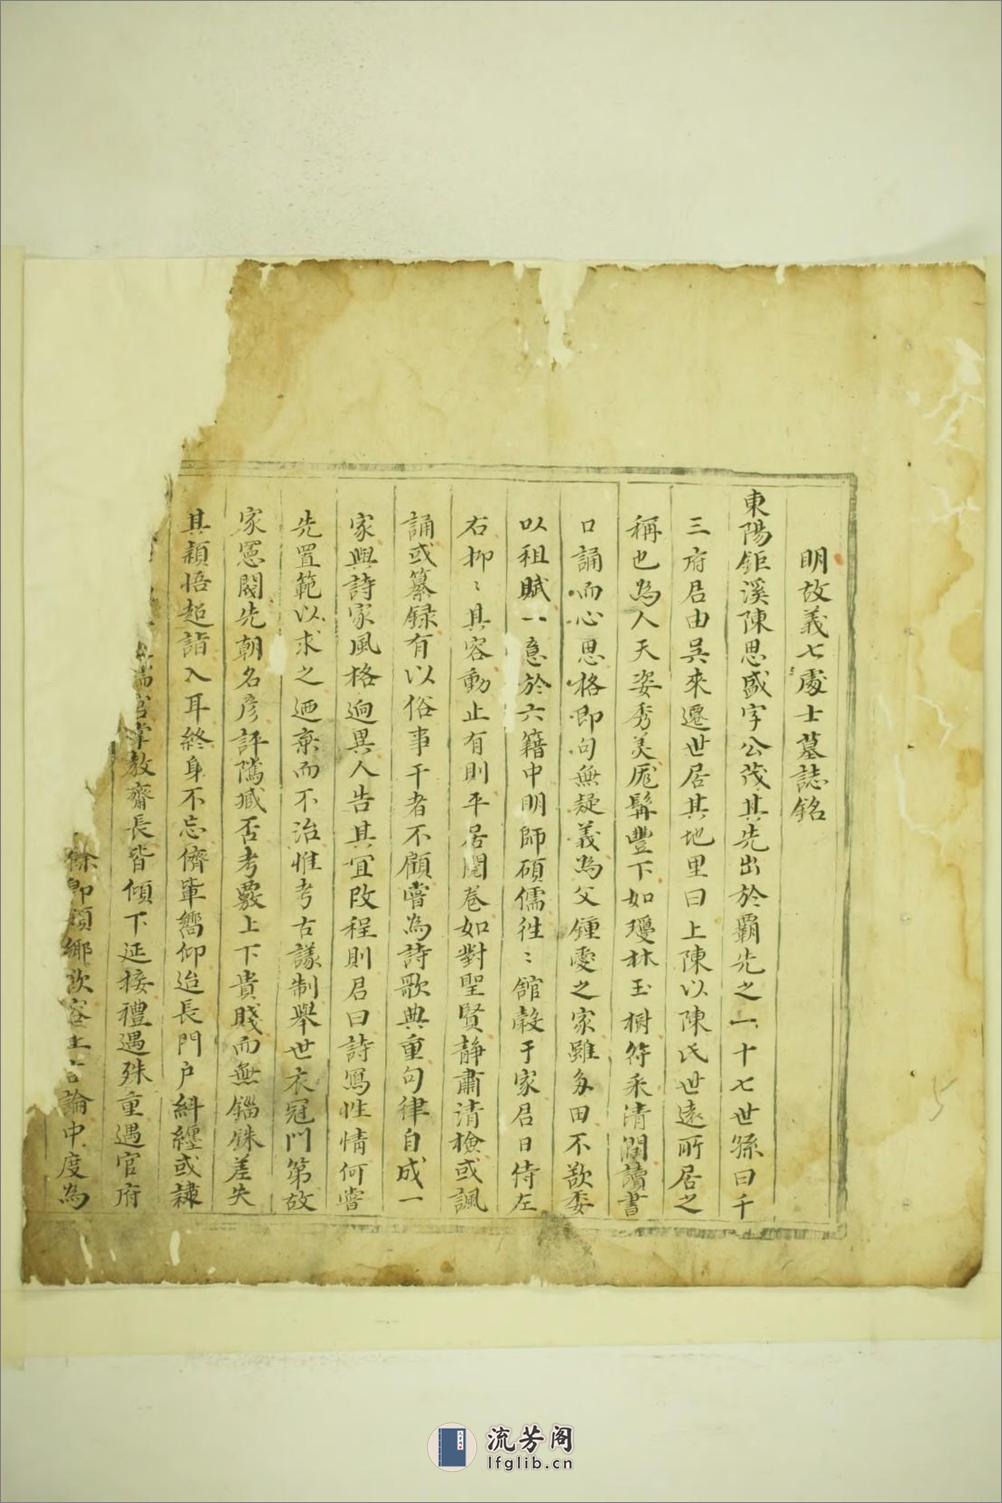 明故義七處士墓誌銘
東陽鉅溪陳思盛字公茂其先出於霸先之一十七世孫曰千
三府君由吳來遷世居其地里曰上陳以陳氏世遠所居之
稱也為人天姿秀美厖髯豐下如瓊林玉樹符采清潤讀書
口誦而心思格即句無疑義為父鍾愛之家雖多田不歆委
以租賦一意於六籍中明師碩儒徃〻館穀于家君日侍左
右抑〻其容動止有則平居閱卷如對聖賢靜肅清撿或諷
誦或纂録有以俗事干者不顧嘗為詩歌典重句律自成一
家與詩家風格逈異人告其宜改程則君曰詩寫性情何嘗
先置範以求之廼棄而不治惟考古議制舉世衣冠門第故
家憲閥先朝名彦評隲臧否考覈上下貴賤而無錙銖差失
其穎悟超詣入耳終身不忘儕軰嚮仰迨長門戶糾纏或隷
教齋長皆傾下延接禮遇殊重遇官府
鄉飲容止言論中度為
流芳阁
lfglib.cn